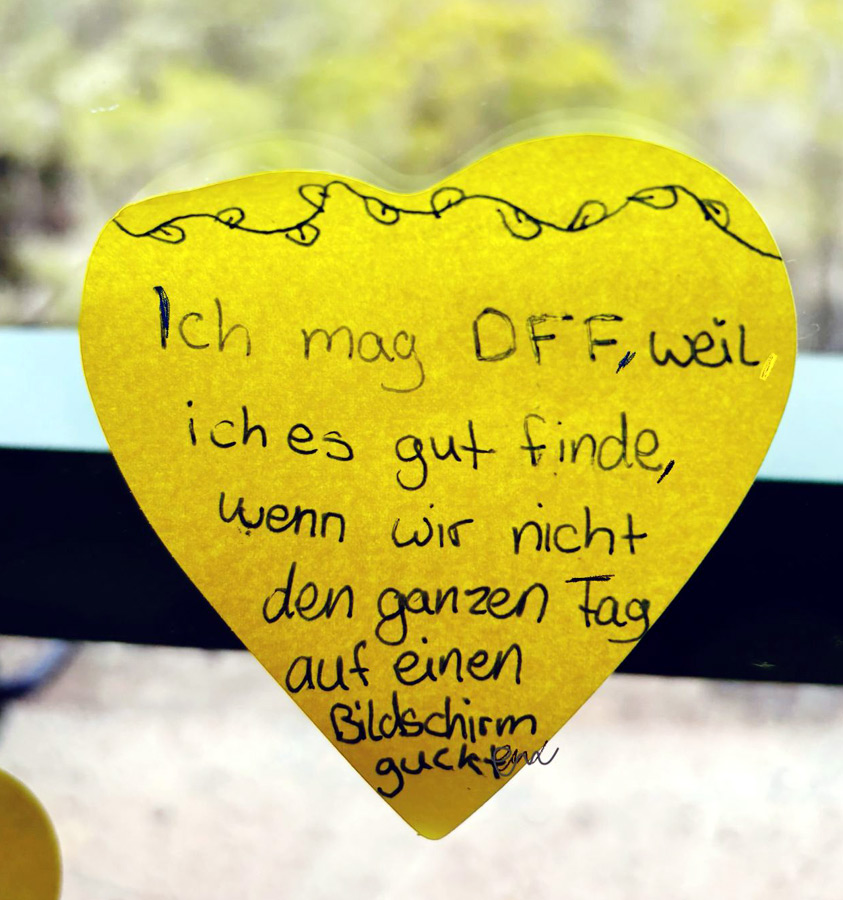 Ich mag DFF, weil
ich es gut finde,
wenn wir nicht
den ganzen Tag
auf einen
Bildschirm